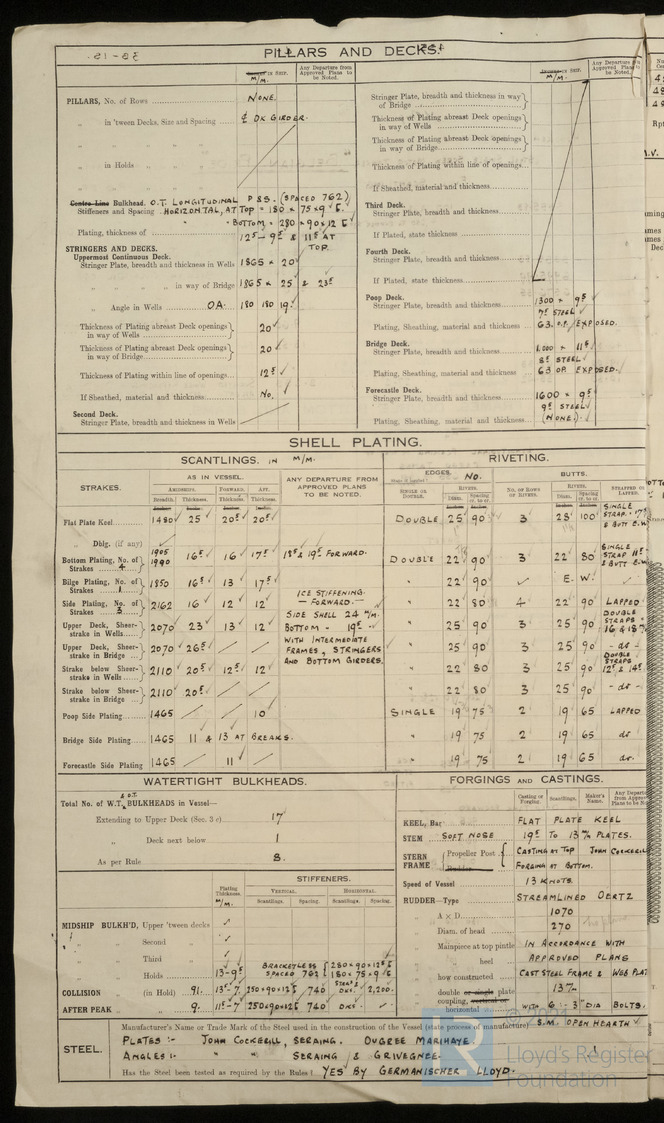 PILLARS AND DECKS.
M/M.
IN SHIP.
Any Departure from Approved Plans to be Noted.
PILLARS, No. of Rows NONE.
" in 'tween Decks, Size and Spacing ₵ DK GIRDER.
" "
" in Holds "
Centre Line Bulkhead. O.T. LONGITUDINAL P & S. (SPACED 762)
Stiffeners and Spacing HORIZONTAL, AT TOP = 180 × 75 × 9.5
" BOTTOM = 280 × 90 × 12.5
Plating, thickness of 12.5 - 9.5 & 11.5 AT TOP.
STRINGERS AND DECKS.
Uppermost Continuous Deck.
Stringer Plate, breadth and thickness in Wells 1865 × 20
" " " in way of Bridge 1865 × 25 & 23.5
" Angle in Wells OA. 180 180 19
Thickness of Plating abreast Deck openings in way of Wells 20
Thickness of Plating abreast Deck openings in way of Bridge 20
Thickness of Plating within line of openings 12.5
If Sheathed, material and thickness No.
Second Deck.
Stringer Plate, breadth and thickness in Wells
Stringer Plate, breadth and thickness in way of Bridge
Thickness of Plating abreast Deck openings in way of Wells
Thickness of Plating abreast Deck openings in way of Bridge
Thickness of Plating within line of openings
If Sheathed, material and thickness
Third Deck.
Stringer Plate, breadth and thickness
If Plated, state thickness
Fourth Deck.
Stringer Plate, breadth and thickness
If Plated, state thickness
Poop Deck.
Stringer Plate, breadth and thickness 1300 × 9.5
Plating, Sheathing, material and thickness 7.5 STEEL 63 O.P. EXPOSED.
Bridge Deck.
Stringer Plate, breadth and thickness 1.000 × 11.5
Plating, Sheathing, material and thickness 8.5 STEEL 63 OP. EXPOSED.
Forecastle Deck.
Stringer Plate, breadth and thickness 1600 × 9.5
Plating, Sheathing, material and thickness 9.5 STEEL (NONE)
SHELL PLATING.
SCANTLINGS. IN M/M.
RIVETING.
STRAKES.
AS IN VESSEL.
AMIDSHIPS. FORWARD. AFT.
Breadth. Thickness. Thickness. Thickness.
ANY DEPARTURE FROM APPROVED PLANS TO BE NOTED.
EDGES. No.
SINGLE OR DOUBLE.
RIVETS.
Diam. Spacing cr. to cr.
No. OF ROWS OF RIVETS.
BUTTS.
RIVETS.
Diam. Spacing cr. to cr.
STRAPPED OR LAPPED.
Flat Plate Keel 1480 25 20.5 20.5 DOUBLE 25 90 3 25 100 SINGLE STRAP. & BUTT E.W.
" Dblg. (if any)
Bottom Plating, No. of Strakes 4 1905 1990 16.5 16 17.5 18.5 & 19.5 FORWARD. DOUBLE 22 90 3 22 80 SINGLE STRAP & BUTT E.W.
Bilge Plating, No. of Strakes 1 1850 16.5 13 17.5 " 22 90 E. W.
Side Plating, No. of Strakes 3 2162 16 12 12 " 22 80 4 22 90 LAPPED
Upper Deck, Sheerstrake in Wells 2070 23 13 12 " 25 90 3 25 90 DOUBLE STRAPS
Upper Deck, Sheerstrake in Bridge 2070 26.5 " 25 90 3 25 90 - do -
Strake below Sheerstrake in Wells 2110 20.5 12.5 12 " 22 80 3 25 90 DOUBLE STRAPS 12.5 & 14.5
Strake below Sheerstrake in Bridge 2110 20.5 " 22 80 3 25 90 - do -
ICE STIFFENING. — FORWARD. —
SIDE SHELL 24 M/M.
BOTTOM = 19.5
WITH INTERMEDIATE
FRAMES, STRINGERS
AND BOTTOM GIRDERS.
Poop Side Plating 1465 10 SINGLE 19 75 2 19 65 LAPPED
Bridge Side Plating 1465 11 & 13 AT BREAKS. " 19 75 2 19 65 do
Forecastle Side Plating 1465 11 " 19 75 2 19 65 do.
WATERTIGHT BULKHEADS.
Total No. of W.T. & O.T. BULKHEADS in Vessel—
Extending to Upper Deck (Sec. 3 c) 17
" Deck next below 1
As per Rule 8.
Plating Thickness. M/M.
STIFFENERS.
VERTICAL. HORIZONTAL.
Scantlings. Spacing. Scantlings. Spacing.
MIDSHIP BULKH'D, Upper 'tween decks
" " Second "
" " Third "
" " Holds 13-9.5 BRACKETLESS SPACED 762 280×90×12.5 180×75×9.5
COLLISION " (in Hold) 91. 13.5-7 250×90×12.5 740 STRGRS & DKS. 2,200.
AFTER PEAK " " 9. 11.5-7 250×90×12.5 740 DKS.
FORGINGS AND CASTINGS.
Casting or Forging. Scantlings. Maker's Name. Any Departure from Approved Plans to be Noted
KEEL, Bar FLAT PLATE KEEL
STEM SOFT NOSE 19.5 TO 13 M/M PLATES.
STERN FRAME { Propeller Post CASTING AT TOP JOHN COCKERILL
Rudder " FORGING AT BOTTOM.
Speed of Vessel 13 KNOTS.
RUDDER—Type STREAMLINED OERTZ
" A × D 1070
" Diam. of head 270
" Mainpiece at top pintle IN ACCORDANCE WITH
" " heel APPROVED PLANS
" how constructed CAST STEEL FRAME & WEB PLAT
" double or single plate 13
" coupling, vertical or horizontal WITH 6 : 3" DIA BOLTS.
STEEL.
Manufacturer's Name or Trade Mark of the Steel used in the construction of the Vessel (state process of manufacture) S.M. OPEN HEARTH
PLATES :- JOHN COCKERILL, SERAING. OUGREE MARIHAYE.
ANGLES :- " " SERAING & GRIVEGNEE.
Has the Steel been tested as required by the Rules? YES BY GERMANISCHER LLOYD.
© 2021
Lloyd's Register
Foundation